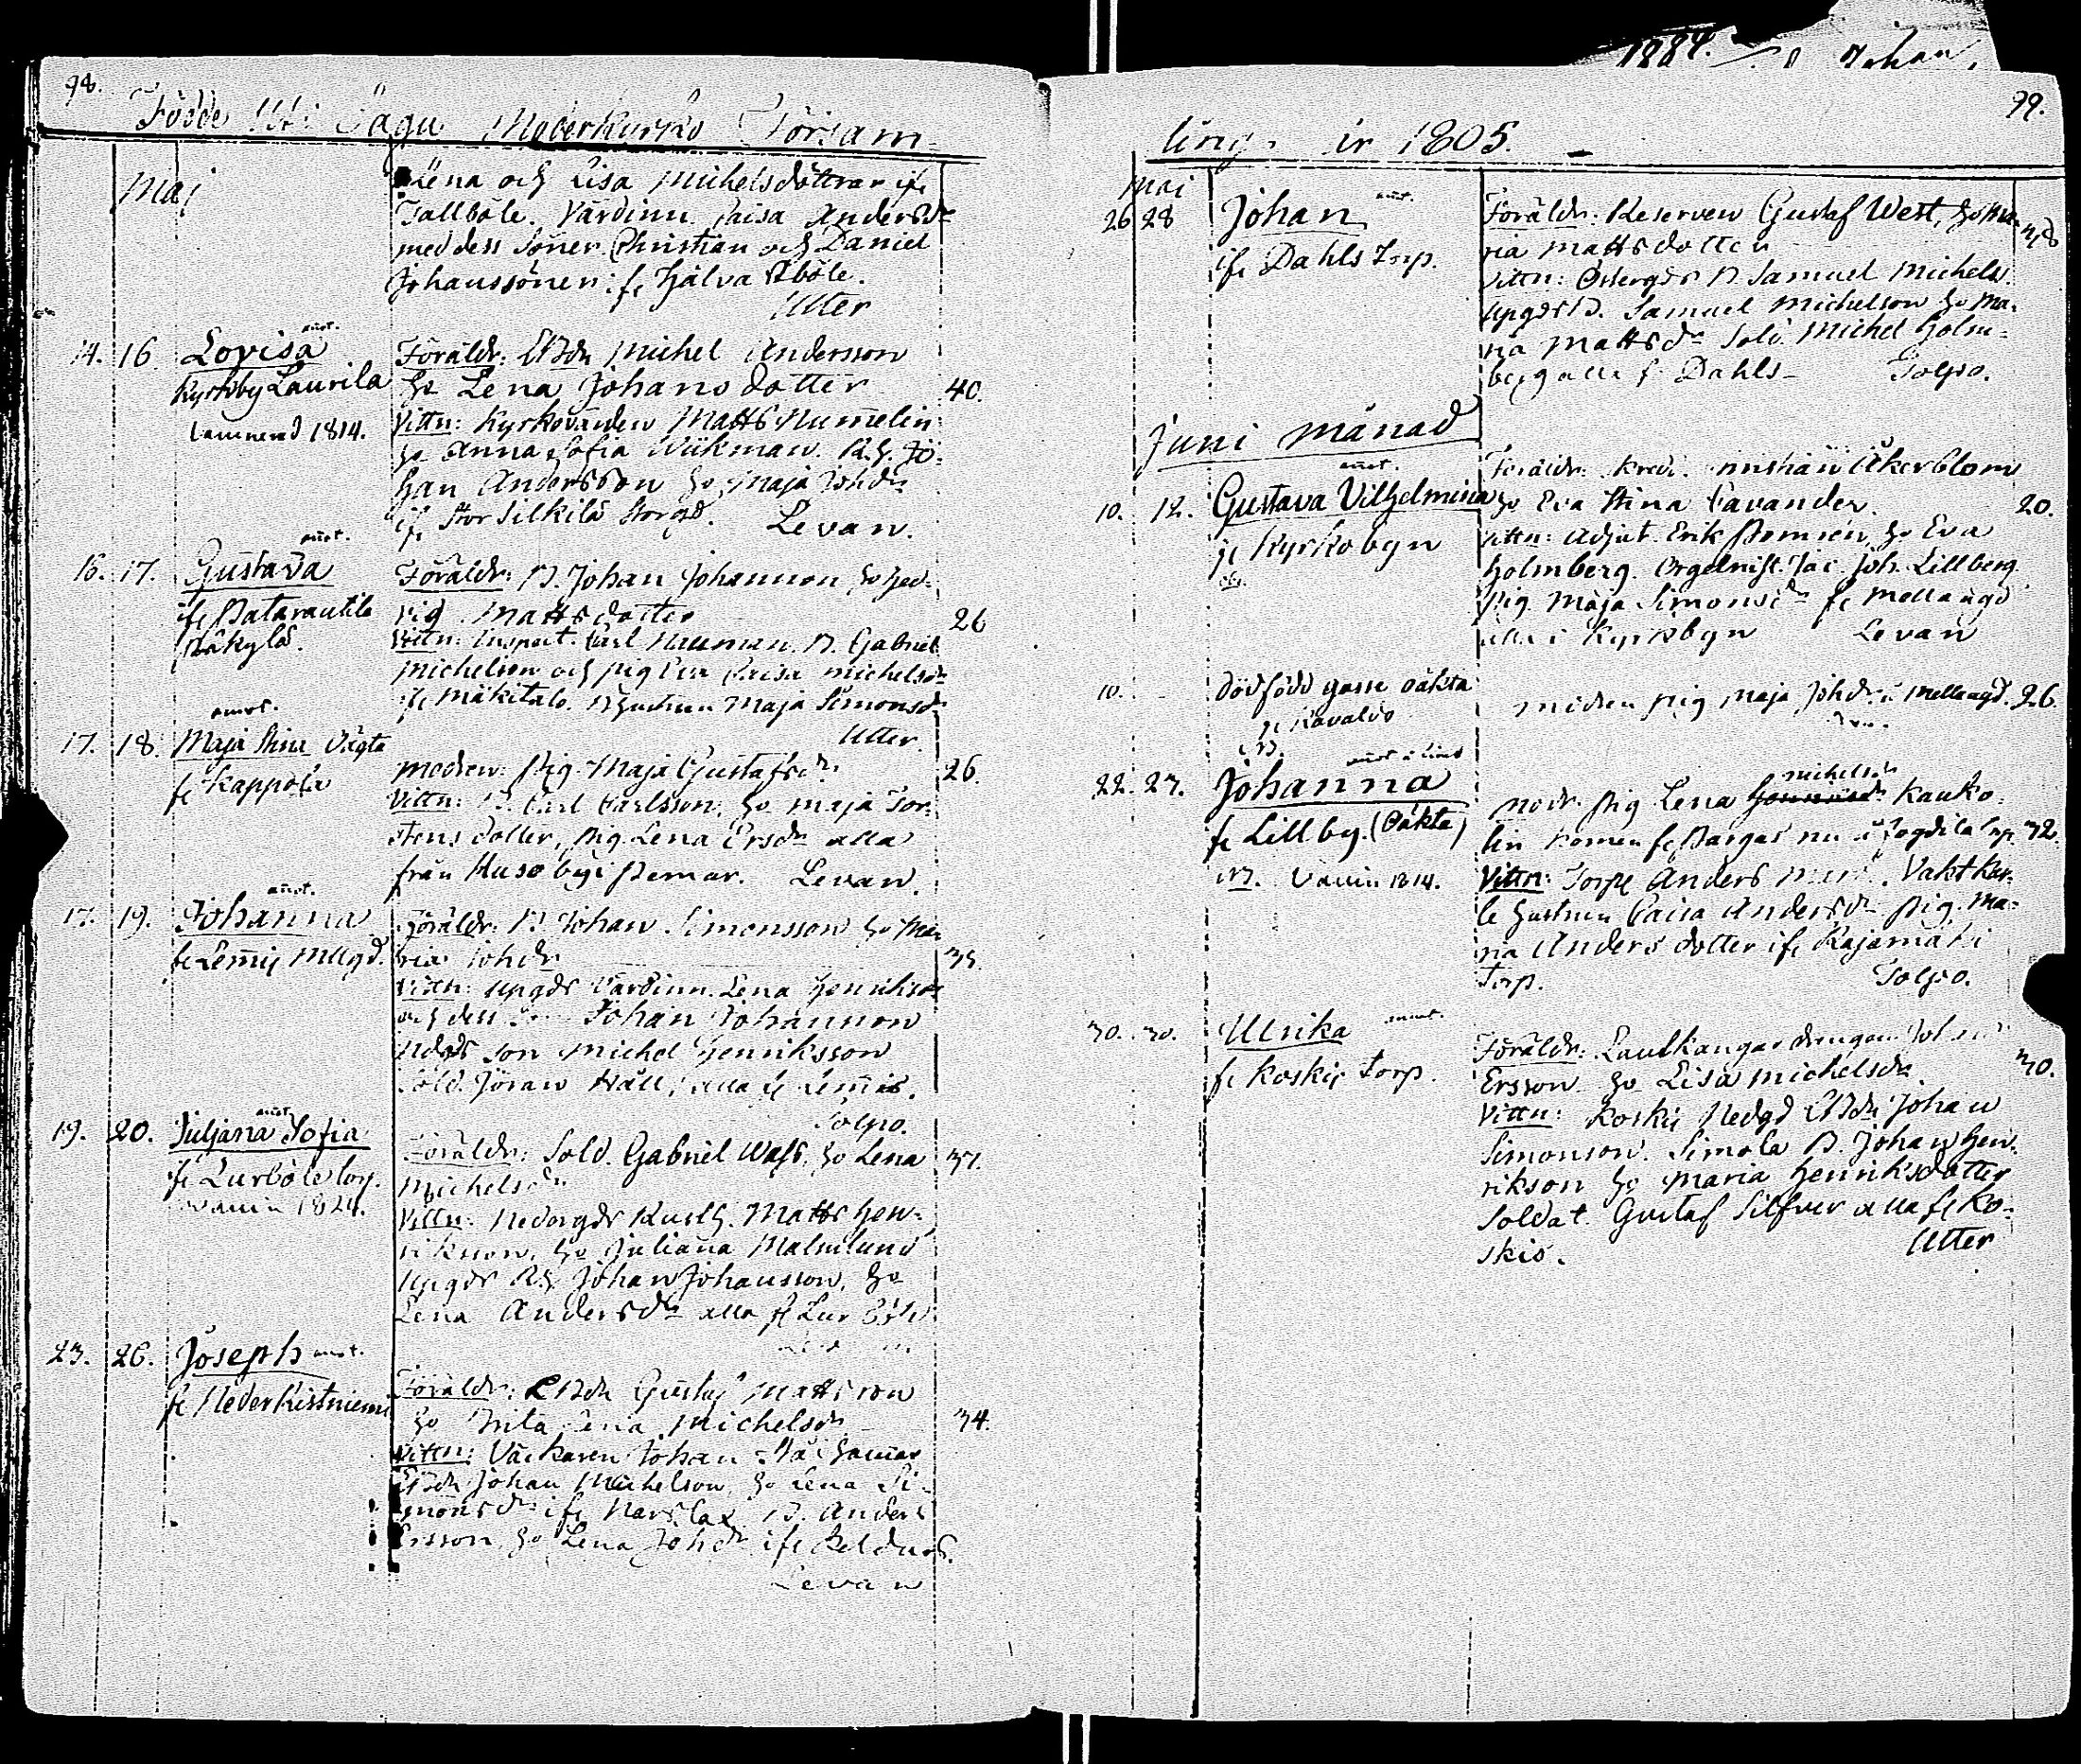 98.
Födde Uti Sagu Moderkyrko Försam⸗
Maj
Lena och Lisa Michelsdöttrar ifr
Tallböle. Värdinn Caisa Andersdr
med dess Söner Christian och Daniel
Johanssöner: fr Hälva böle.
Utter
14. 16. Lovisa
Kyrkby Laurila
1814.
Föräldr: Michel Andersson
ho Lena Johansdotter 40.
Vittn: Kyrkovärden Matts Numelin
ho Anna Sofia Wiikman. R.H. Jo⸗
han Andersson ho Maja Johdr
ifr Stor Silkilä Storgd. Levan.
16. 17. Gustava
ifr Patarautila
Föräldr: B. Johan Johannson ho Hed⸗
vig Mattsdotter 26
Vittn: Inspect. Carl Nauman. B. Gabriel
Michelson och pig Eva Caisa Michelsdr
ifr Mäkitalo. Hustrun Maja Simonsdr
Utter.
17. 18. Maja Stina Oägta
fr Kappola
modren: Pig. Maja Gustafsdr 26.
Vittn: B. Carl Carlsson, ho Maja Tor⸗
stens dotter, pig. Lena Ersdr alla
från Huso by i Pemar. Levan.
17. 19. Johanna
fr Lemis Mllgd.
Föräldr: B. Johan Simonsson ho Ma⸗
ria Johdr 35.
Vittn: Upgds Värdinn. Lena Henriksdr
och dess Johan Johannson
Nedgds son Michel Henriksson
Sold. Jöran Häll, alla fr Lemis.
Tolpo.
19. 20. Juljana Sofia
fr Lurböle torp.
1824.
Föräldr: Sold. Gabriel Wass, ho Lena 37.
Michelsdr
Vittn: Nedergds Rusth. Matts Hen⸗
rikson, ho Juliana Malmlund
Upgds R.H. Johan Johansson, ho
Lena Andersdr alla fr Lurböle
23. 26. Joseph
fr Nederkistniemi
Föräldr: Gustaf Mattsson
ho Brita Lena Michelsdr 34.
Vittn: Väckaren Johan
Johan Michelson, ho Lena Si⸗
monsdr ifr B. Anders
Ersson, ho Lena Johdr ifr
Levan
1884. Johan.
99.
ling år 1805.
Maj
26 28 Johan
ifr Dahls Torp.
Föräldr: Reserven Gustaf West, ho Ma⸗
ria Mattsdotter
Vittn: Östergds B. Samuel Michels.
Upgds B. Samuel Michelson ho Ma⸗
ria Mattsdr Sold. Michel Holm⸗
berg alla fr Dahls Tolpo.
Juni månad
10. 12. Gustava Vilhelmina
fr Kyrkobyn
Föräldr: Åkerblom
ho Eva Stina Cavander. 20.
Vittn: Adjut. Erik ho Eva
Holmberg. Orgelnist. Jac. Joh. Lillberg
Pig. Maja Simonsdr fr Mellangd
alla i Kyrkbyn Levan
10. dödfödd gosse oäkta
fr Kavaldo
modren pig Maja Johdr i Mellangd. 26.
22. 23. Johanna
fr Lillby. (Oäkta)
1814.
Michelsdr
modr. Pig Lena Kauko⸗
lin komen fr Pargas nu 32.
Vittn: Torp Anders Vaktkar⸗
le hustrun Caisa Andersdr pig. Ma⸗
ria Anders dotter ifr Kajamäki
Torp. Tolpo.
30. 30. Ulrika
fr Koskis torp.
Föräldr: Lautkangas drengen
Ersson ho Lisa Michelsdr. 30.
Vittn: Koskis Nedgd Johan
Simonson. Simola B. Johan Hen⸗
rikson ho Maria Henriksdotter
Soldat. Gustaf Silfver alla fr Ko⸗
skis. Utter